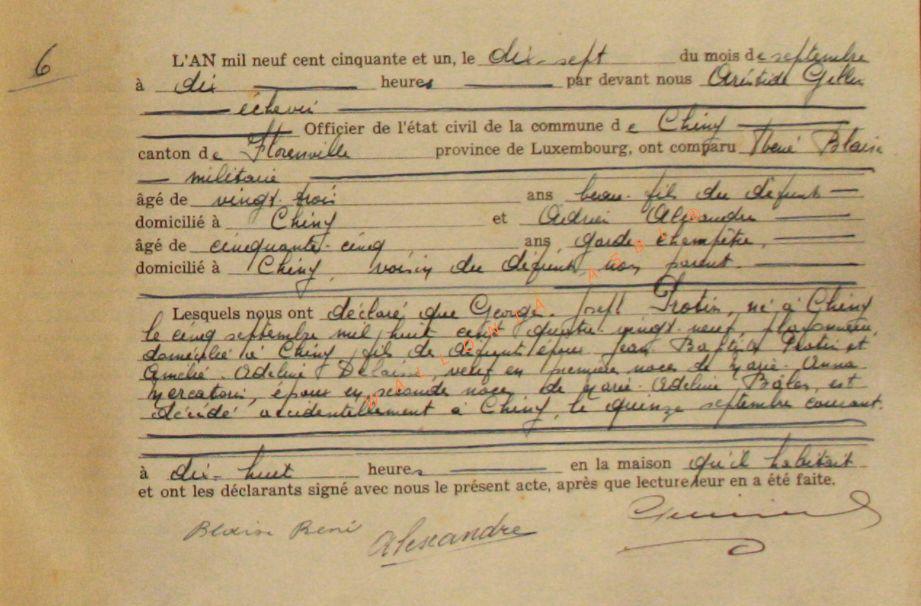 6
L'AN mil neuf cent cinquante et un, le dix-sept du mois de septembre
à dix heures par devant nous Aristide
échevin
Officier de l'état civil de la commune de Chiny
canton de Florenville province de Luxembourg, ont comparu René Blaise
militaire
âgé de vingt-trois ans beau-fils du défunt
domicilié à Chiny et Alexandre
âgé de cinquante-cinq ans, garde champêtre,
domicilié à Chiny, voisin du défunt, non parent.
Lesquels nous ont déclaré que George-Joseph Protin, né à Chiny
le cinq septembre mil huit cent quatre vingt-neuf,
domicilié à Chiny, fils de défunt époux Jean Baptiste Protin et
Amélie-Adeline veuf en premières noces de Marie-Anna
époux en seconde noces de Marie-Adeline est
décédé accidentellement à Chiny, le quinze septembre courant.
à dix-huit heures en la maison qu'il habitait
et ont les déclarants signé avec nous le présent acte, après que lecture leur en a été faite.
Blaise René
Alexandre